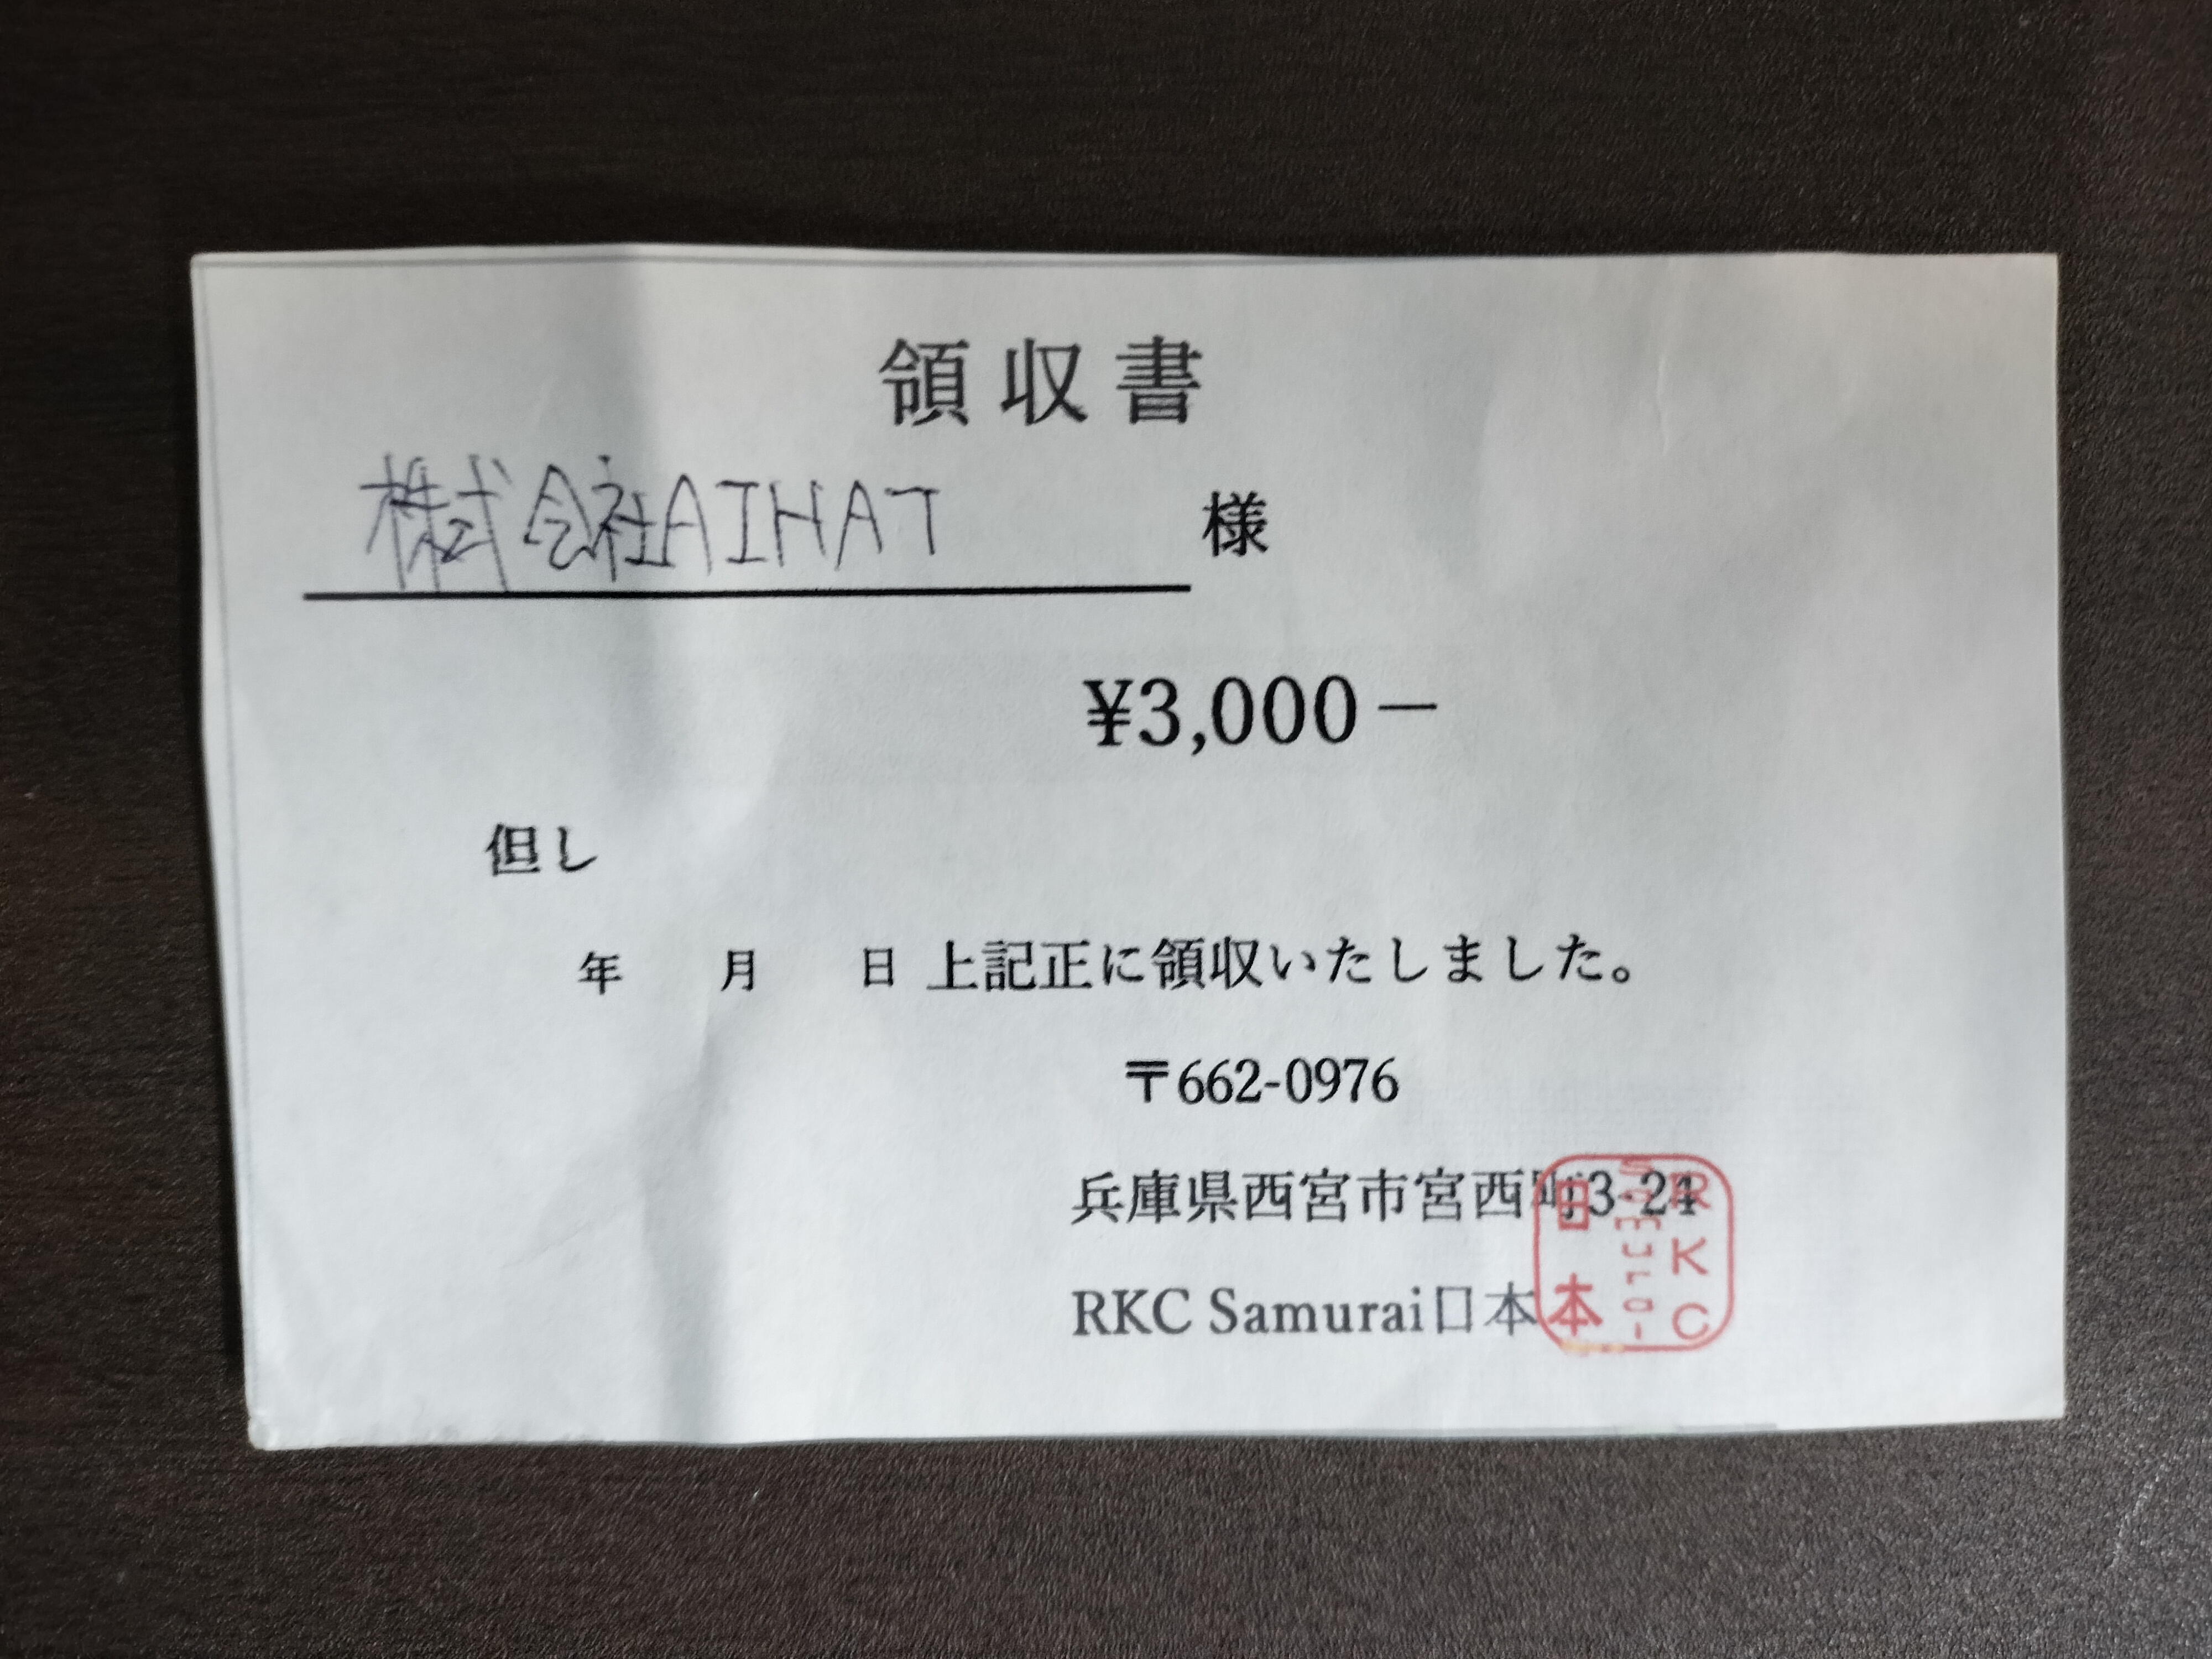 領収書
株式会社AIHAT 様
¥3,000－
但し
年 月 日 上記正に領収いたしました。
〒662-0976
兵庫県西宮市宮西町3-24
RKC Samurai日本
RKC
Samurai
日本